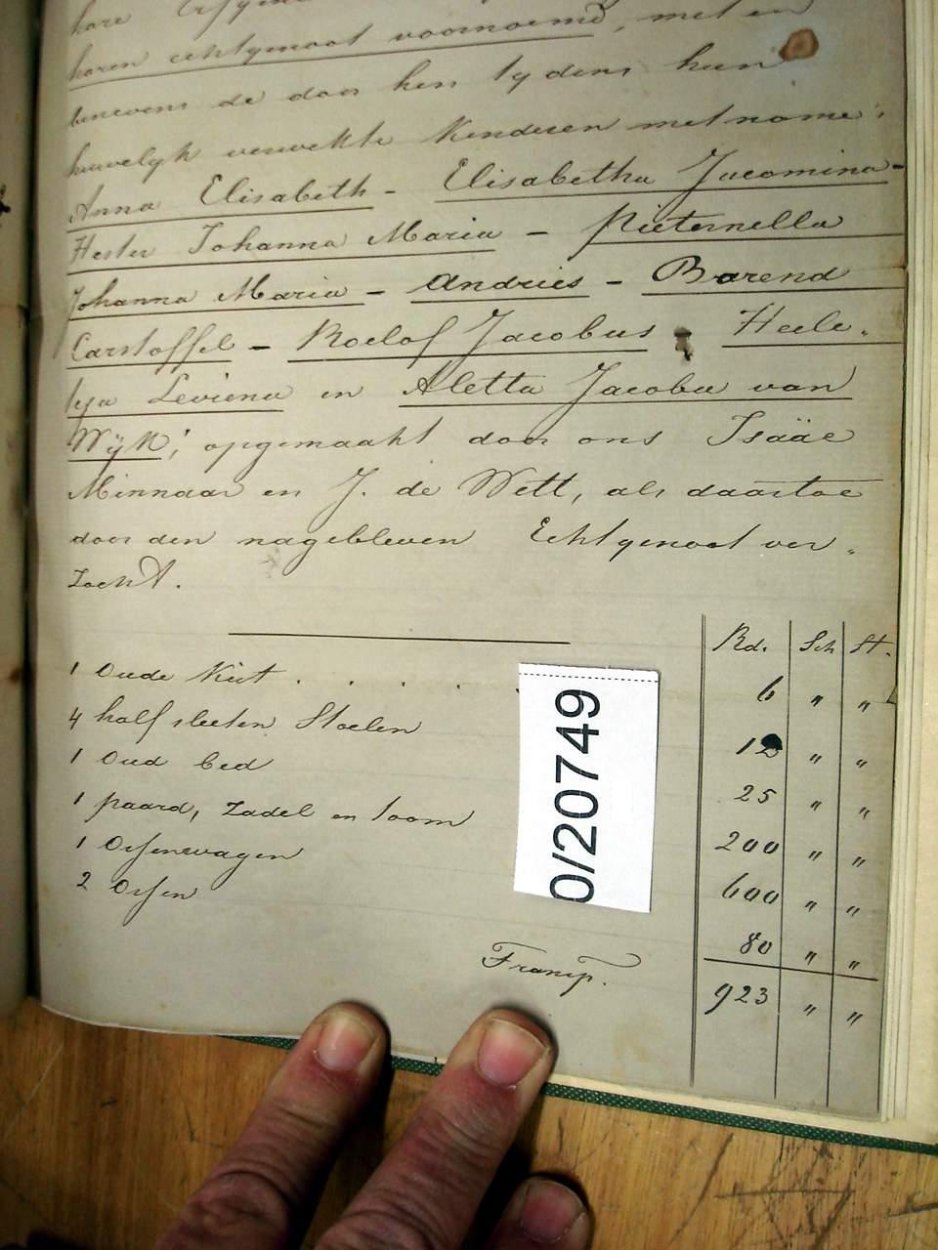 hare
haren echtgenoot voornoemd, met en
benevens de door hen tydens hun
huwelyk verwekte Kinderen met name:
Anna Elisabeth - Elisabetha Jacomina -
Hester Johanna Maria - Pieternella
Johanna Maria - Andries - Barend
Carstoffel - Roelof Jacobus - Heele-
tya Leviena en Aletta Jacoba van
Wÿk; opgemaakt door ons Isäac
Minnaar en J. de Wett, als daartoe
door den nagebleven Echtgenoot ver-
zocht.
Rd. Sch St.
1 Oude Kist . . . . . 6 " "
4 half sleeten Stoelen 12 " "
1 Oud bed 25 " "
1 paard, zadel en toom 200 " "
1 Ossenwagen 600 " "
2 Ossen 80 " "
Transp. 923 " "
0/20749